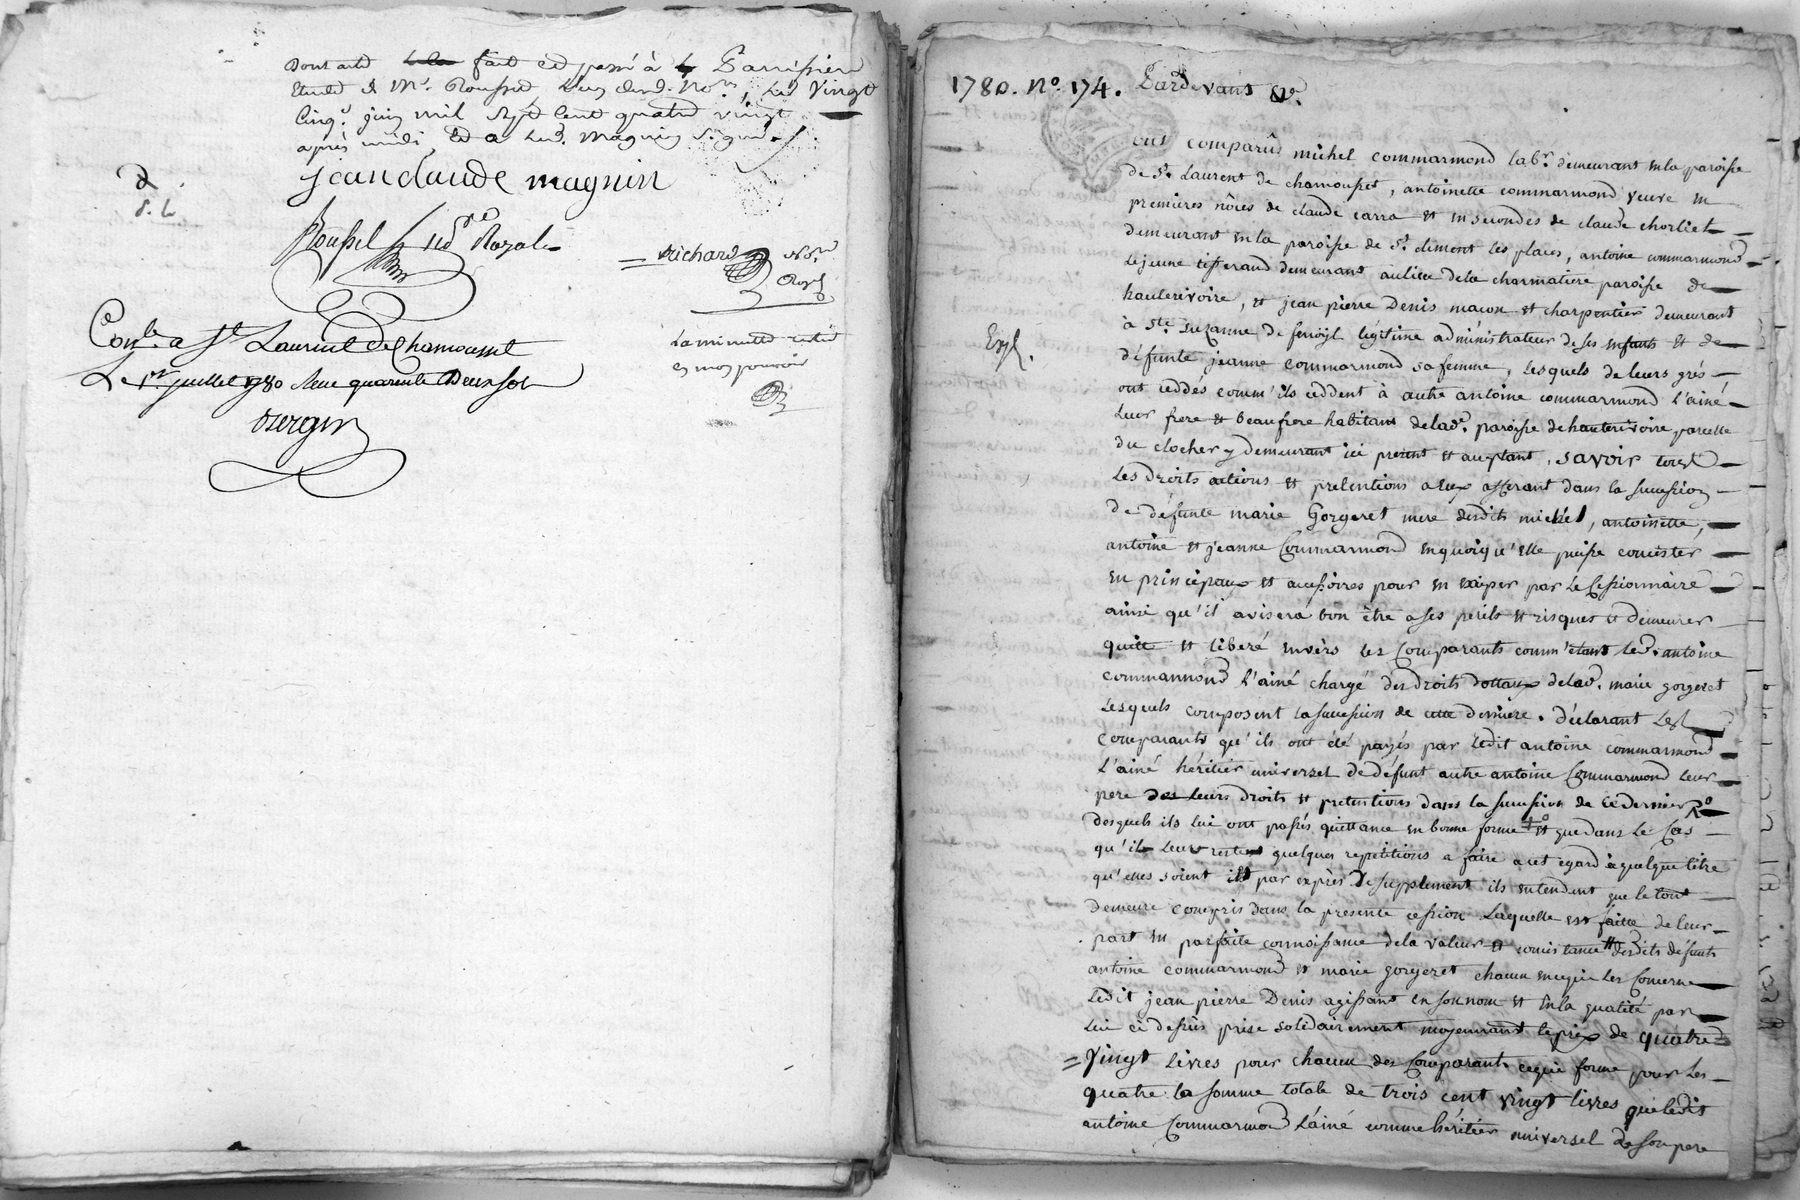 Dont acte fait et passé à
Etude de Me. Roussel, L'un desd. Nores, Le Vingt
Cinq. juin mil sept cent quatre vingt
après midi, Et a Led. Magnin signé
jean claude magnin
Roussel Nore Royal
Richard Nore
Royal
Conlé a St Laurent de Chamousset
Le 1er juillet 1780 Reçu quarante Deux sols
La minutte restée
en mon pouvoir
1780. No. 174. Pardevant &c.
Expé.
ont comparûs michel commarmond labr. demeurant en la paroisse
de St. Laurent de chamousset, antoinette commarmond veuve en
premieres nôces de claude carra et en secondes de claude chorliet
demeurant en la paroisse de St. clement les places, antoine commarmond
le jeune tisserand demeurant au lieu de la charmatiere paroisse de
hauterivoire, et jean pierre Denis macon et charpentier demeurant
à Ste. suzanne de fenoÿl legitime administrateur de ses enfants et de
défunte jeanne commarmond sa femme, lesquels de leurs grés
ont ceddés comm'ils ceddent à autre antoine commarmond l'ainé
leur frere et beaufrere habitant de lad. paroisse de hauterivoire parcelle
du clocher y demeurant ici present et acceptant, savoir tous
Les droits actions et pretentions a eux afferant dans la succession
de défunte marie Gorgeret mere desdits michel, antoinette,
antoine et jeanne Commarmond en quoiqu'elle puisse concister
en principaux et accessoires pour en exiper par le Cessionnaire
ainsi qu'il avisera bon être a ses perils et risques et demeurer
quitte et liberé envers les Comparants comm'étant led. antoine
commarmond l'ainé chargé des droits dottaux de lad. marie gorgeret
lesquels composent la succession de cette derniere. déclarant les
comparants qu'ils ont été payés par ledit antoine commarmond
l'ainé héritier universel de défunt autre antoine Commarmond leur
pere des leurs droits et pretentions dans la succession de ce dernier
desquels ils lui ont passés quittance en bonne forme et que dans le Cas
qu'il leur restent quelques repetitions a faire a cet egard à quelque titre
qu'elles soient et par exprès de supplement ils entendent que le tout
demeure compris dans la presente cession laquelle est faitte de leur
part en parfaite connoissance de la valeur et concistance desdits défunts
antoine commarmond et marie gorgeret chacun en ce qui les Concerne
Ledit jean pierre Denis agissant en son nom et en la qualité par
lui ci dessus prise solidairement moyennant le prix de quatre
Vingt livres pour chacun des Comparants ce qui forme pour les
quatre la somme totale de trois cent vingt livres que ledit
antoine Commarmond L'ainé comme héritier universel de son pere